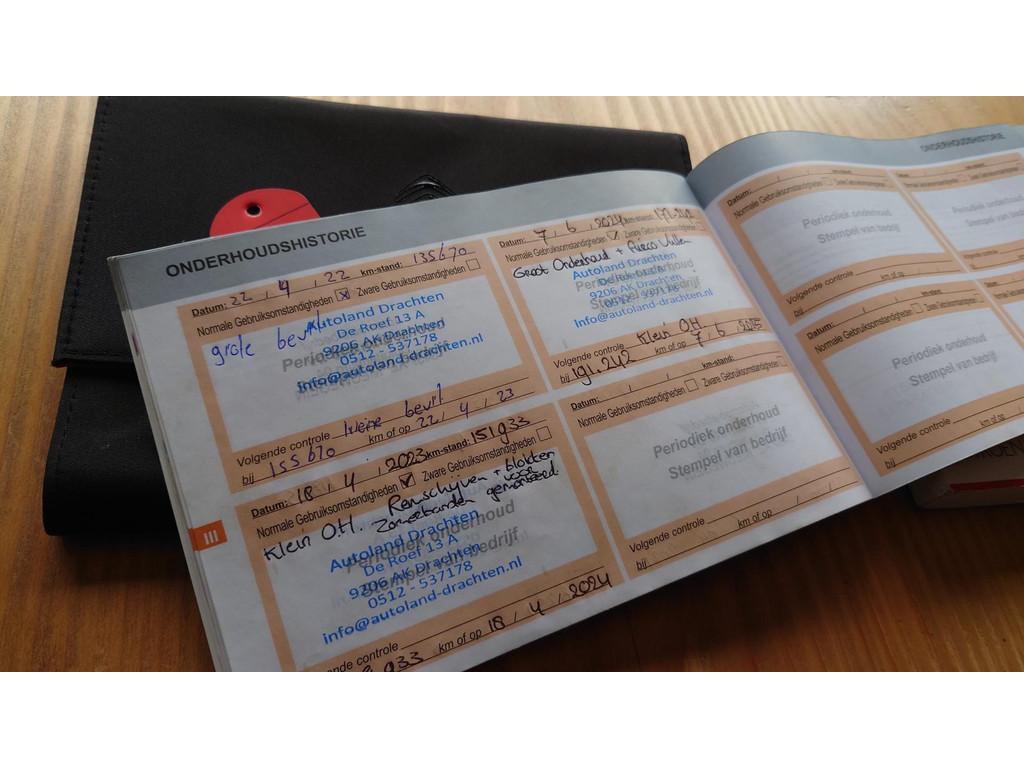 ONDERHOUDSHISTORIE
Datum: 22 / 4 / 22 km-stand: 135670
Normale Gebruiksomstandigheden Zware Gebruiksomstandigheden
grote
Autoland Drachten
De Roef 13 A
9206 AK Drachten
0512 - 537178
info@autoland-drachten.nl
Periodiek onderhoud
Volgende controle
bij 155670 km of op 22 / 4 / 23
Datum: 18 / 4 / 2023 km-stand: 151933
Normale Gebruiksomstandigheden Zware Gebruiksomstandigheden
Klein O.H. - Remschijven + blokken voor
Zomerbanden gemonteerd.
Autoland Drachten
De Roef 13 A
9206 AK Drachten
0512 - 537178
info@autoland-drachten.nl
Periodiek onderhoud
Stempel van bedrijf
km of op 18 / 4 / 2024
Datum: 7 / 6 / 2024 km-stand:
Normale Gebruiksomstandigheden Zware
Groot Onderhoud + Airco Vullen
Autoland Drachten
De Roef 13 A
9206 AK Drachten
0512 - 537178
info@autoland-drachten.nl
Volgende controle Klein O.H.
bij 191.242 km of op 7 / 6 / 2025
Datum: / / km-stand:
Normale Gebruiksomstandigheden Zware Gebruiksomstandigheden
Periodiek onderhoud
Stempel van bedrijf
Volgende controle
bij km of op / /
III
ONDERHOUDSHISTORIE
Datum:
Normale Gebruiksomstandigheden
Periodiek onderhoud
Stempel van bedrijf
Volgende controle
bij km of op
Datum:
Normale Gebruiksomstandigheden
Periodiek onderhoud
Stempel van bedrijf
Volgende controle
bij km of op
Periodiek onderhoud
Stempel van bedrijf
Volgende controle
bij